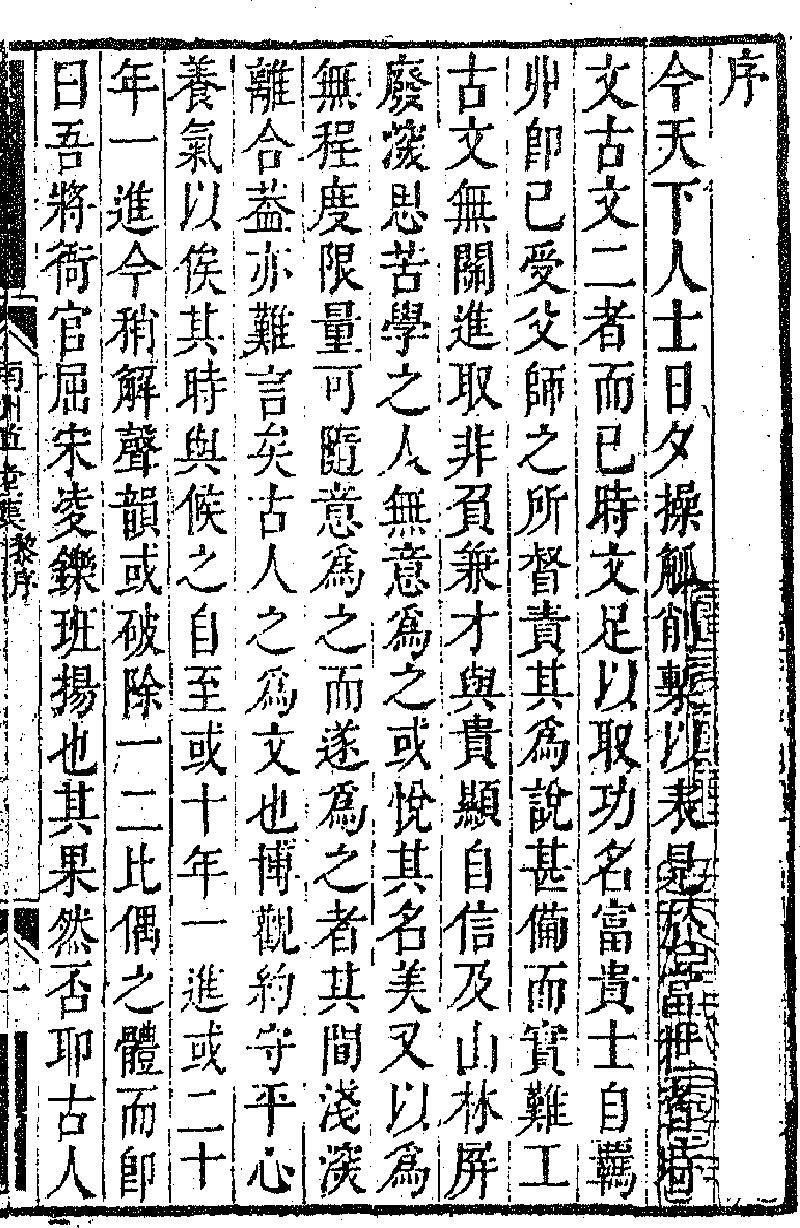 序
今天下人士日夕操觚削槧以表見於當世者時
文古文二者而已時文足以取功名富貴士自羈
丱卽已受父師之所督責其爲說甚備而實難工
古文無關進取非負兼才與貴顯自信及山林屏
廢深思苦學之人無意爲之或悅其名美又以爲
無程度限量可隨意爲之而遂爲之者其間淺深
離合葢亦難言矣古人之爲文也博觀約守平心
養氣以俟其時與候之自至或十年一進或二十
年一進今稍解聲韻或破除一二比偶之體而卽
曰吾將衙官屈宋凌鑠班揚也其果然否耶古人
黎序
一